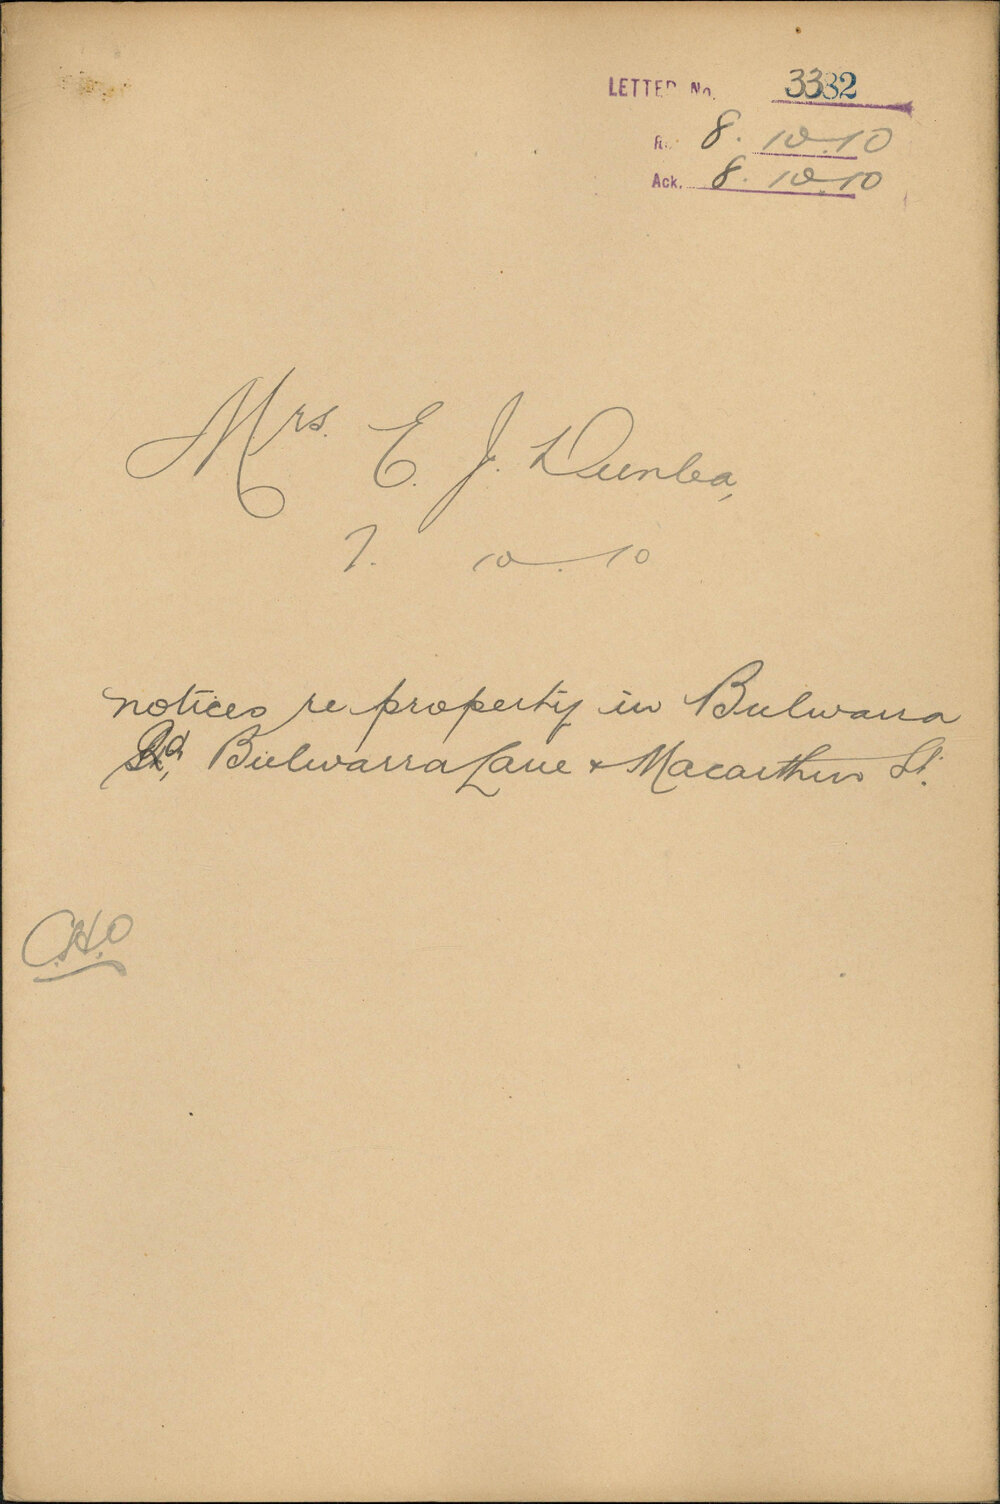 LETTER No. 3332
Re. 8. 10.10
Ack. 8. 10.10
Mrs. E. J. Dunlea,
7. 10.10
notices re property in Bulwarra
Rd, Bulwarra Lane & Macarthur St.
C.H.O